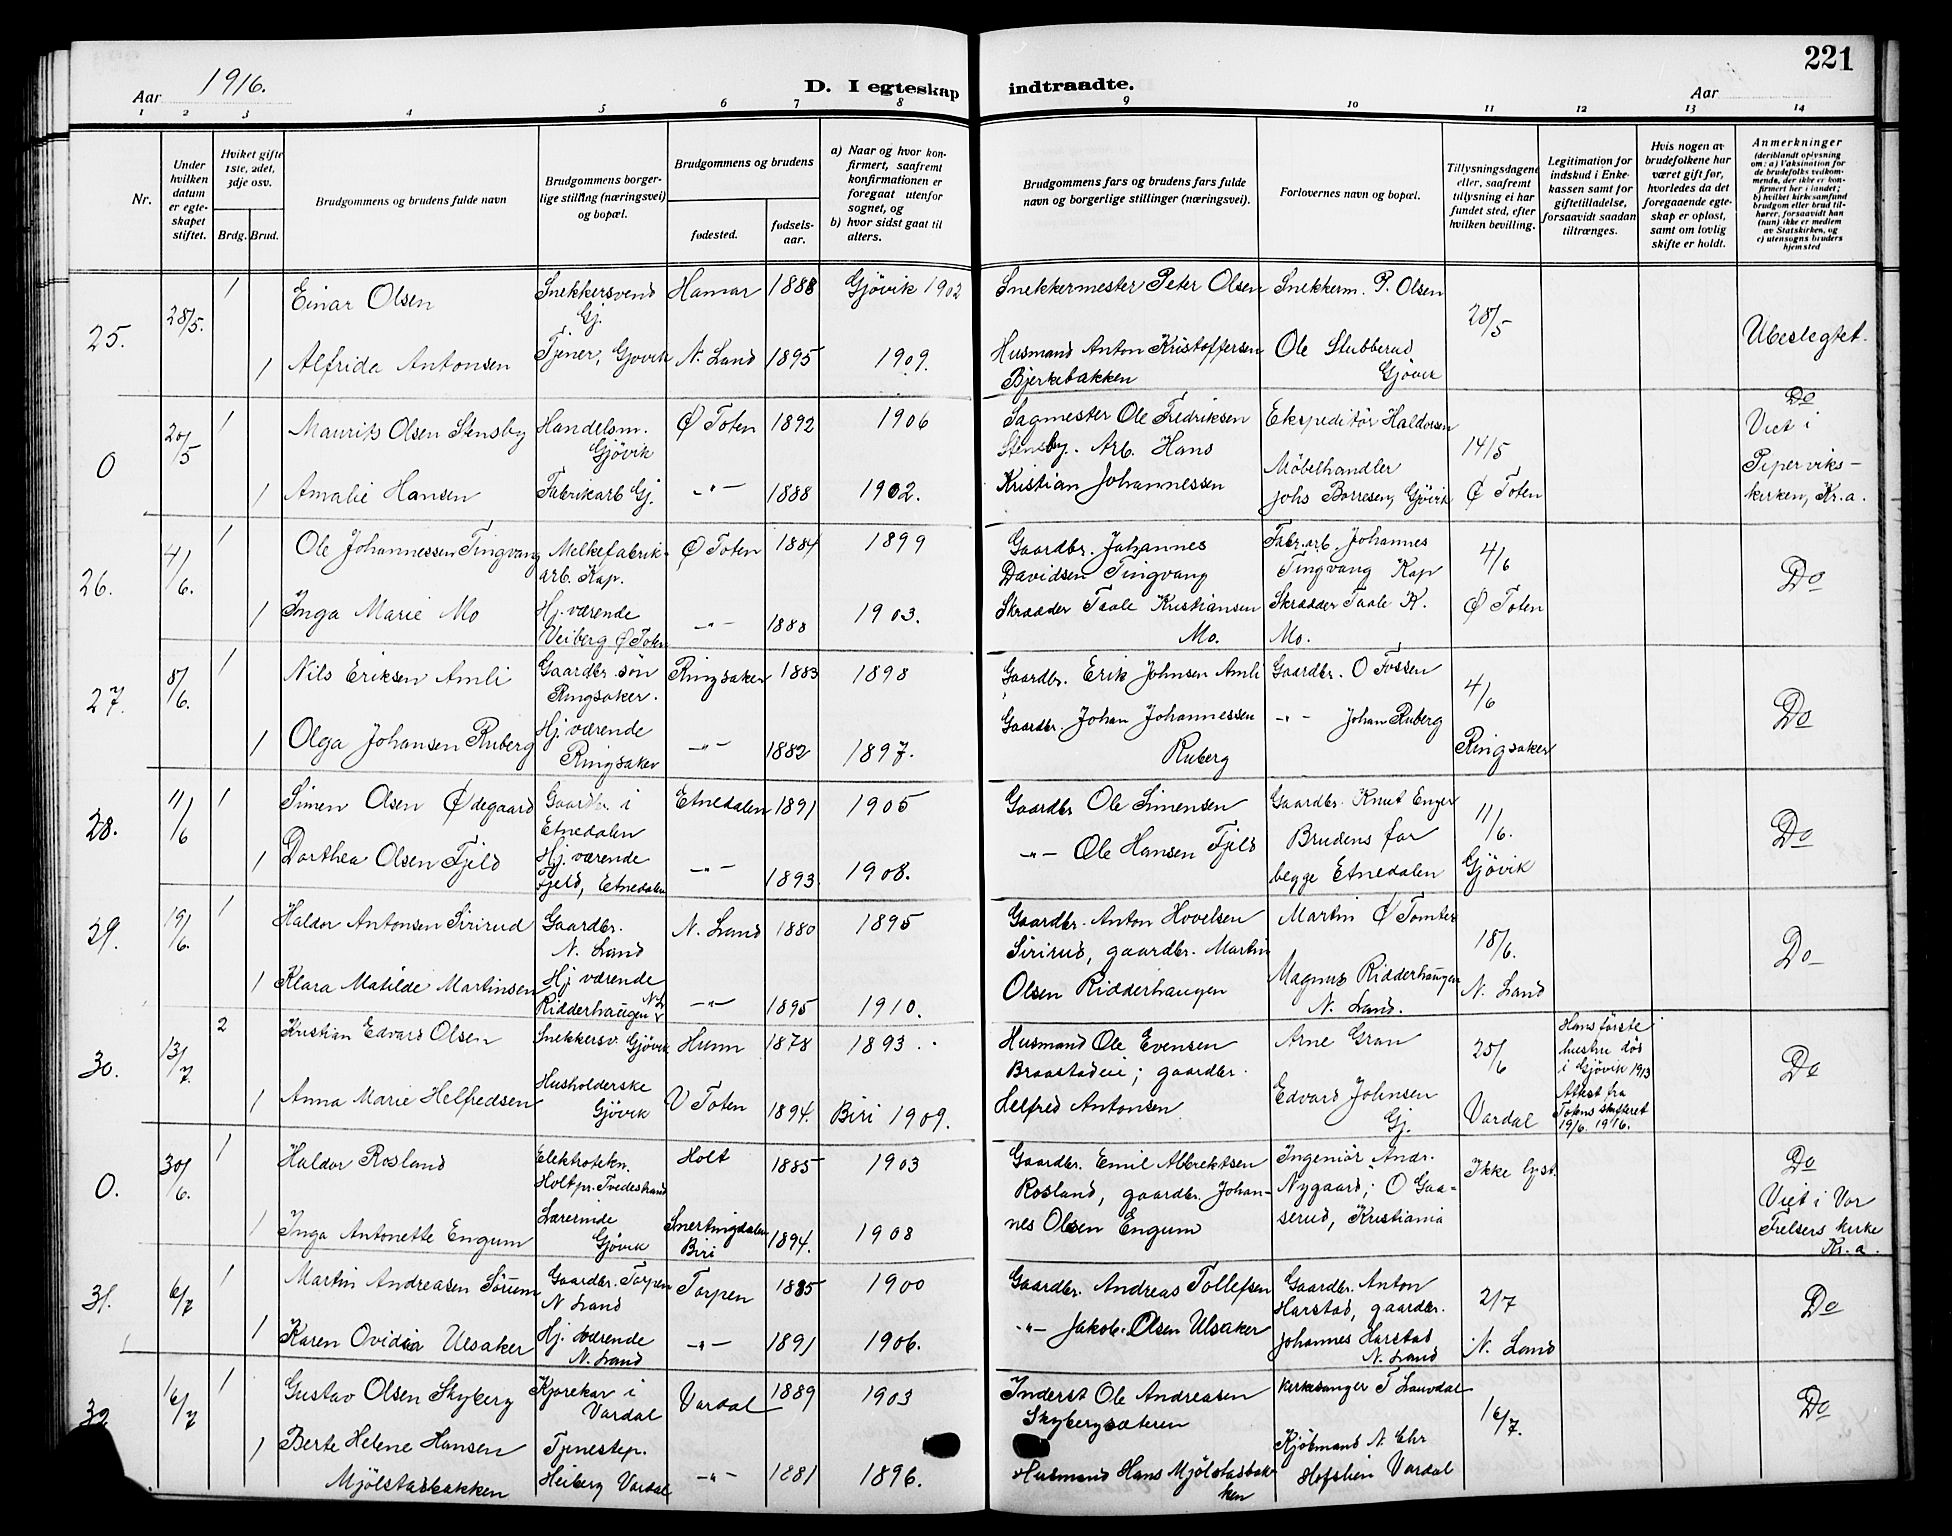 221
Aar 1916.
D. I egteskap indtraadte.
Aar
1 2 3 4 5 6 7 8 9 10 11 12 13 14
Nr.
Under hvilken datum er egteskapet stiftet.
Hviket gifte 1ste, 2det, 3dje osv.
Brdg. Brud.
Brudgommens og brudens fulde navn
Brudgommens borgerlige stilling (næringsvei) og bopæl.
Brudgommens og brudens
fødested.
fødselsaar.
a) Naar og hvor konfirmert, saafremt konfirmationen er foregaat utenfor sognet, og
b) hvor sidst gaat til alters.
Brudgommens fars og brudens fars fulde navn og borgerlige stillinger (næringsvei).
Forlovernes navn og bopæl.
Tillysningsdagene eller, saafremt tillysning ei har fundet sted, efter hvilken bevilling.
Legitimation for indskud i Enkekassen samt for giftetilladelse, forsaavidt saadan tiltrænges.
Hvis nogen av brudefolkene har været gift før, hvorledes da det foregaaende egteskap er opløst, samt om lovlig skifte er holdt.
Anmerkninger
(deriblandt oplysning om: a) Vaksination for de brudefolks vedkommende, der ikke er konfirmert her i landet;
b) hvilket kirkesamfund brudgom eller brud tilhører, forsaavidt han (hun) ikke er medlem av Statskirken, og
c) utensogns bruders hjemsted
25. 28/5. 1 Einar Olsen Snekkersvend Gj. Hamar 1888 Gjøvik 1902 Snekkermester Peter Olsen Snekkerm. P. Olsen 28/5 Ubeslegtet.
1 Alfrida Antonsen Tjener, Gjøvik N. Land 1895 1909. Husmand Anton Kristoffersen Bjerkebakken Ole Stubberud Gjøvik
0 20/5 1 Maurits Olsen Stensby Handelsm. Gjøvik Ø Toten 1892 1906 Sagmester Ole Fredriksen Stensby. Arb. Hans Ekspeditør Haldorsen 14/5 Do Viet i
1 Amalie Hansen Fabrikarb Gj. -"- 1888 1902. Kristian Johannessen Møbelhandler Johs Borresen, Gjøvik Ø Toten Piperviks-kirken, Kr.a.
26. 4/6. 1 Ole Johannessen Tingvang Melkefabrik-arb. Kap. Ø Toten 1884 1899 Gaardbr. Johannes Davidsen Tingvang Fabr.arb. Johannes Tingvang Kap 4/6 Do
1 Inga Marie Mo Hj. værende Veiberg Ø Toten -"- 1888 1903. Skrædder Taale Kristiansen Mo. Skrædder Taale K. Mo. Ø Toten
27. 8/6. 1 Nils Eriksen Amli Gaardbr. søn Ringsaker. Ringsaker 1883 1898 Gaardbr. Erik Johnsen Amli Gaardbr. O Fossen 4/6 Do
1 Olga Johansen Ruberg Hj. værende Ringsaker -"- 1882 1897. Gaardbr. Johan Johannessen Ruberg -"- Johan Ruberg Ringsaker
28. 11/6 1 Simen Olsen Ødegaard Gaardbr. i Etnedalen Etnedalen 1891 1905 Gaardbr Ole Simensen Gaardbr. Knut Enger 11/6. Do
1 Dorthea Olsen Fjeld Hj. værende Fjeld, Etnedalen -"- 1893. 1908. -"- Ole Hansen Fjeld Brudens far begge Etnedalen Gjøvik
29. 19/6. 1 Haldor Antonsen Sirirud Gaardbr. N. Land N. Land 1880 1895 Gaardbr. Anton Hovelsen Sirirud, gaardbr. Martin Martin Ø Tomter 18/6. Do
1 Klara Matilde Martinsen Hj. værende Ridderhaugen N.L. -"- 1895 1910. Olsen Ridderhaugen Magnus Ridderhaugen N. Land. N. Land
30. 13/7. 2 Kristian Edvard Olsen Snekkersv. Gjøvik Hunn 1878 1893. Husmand Ole Evensen Braastadeie; gaardbr. Arne Gran 25/6 Hans første hustru død i Gjøvik 1913 Do
1 Anna Marie Helfredsen Husholderske Gjøvik V Toten 1894. Biri 1909. Helfred Antonsen Edvard Johnsen Gj. Vardal Attest fra Totens skifteret 19/6. 1916.
0. 30/6. 1 Haldor Rosland Elektrotekn. Holt pr. Tvedestrand Holt 1885 1903 Gaardbr. Emil Albrektsen Rosland, gaardbr. Johan- Ingeniør Andr. Nygaard; O Gaa- Ikke lyst. Do
1 Inga Antonette Engum Lærerinde Gjøvik Snertingdalen Biri 1894. 1908 nes Olsen Engum serud, Kristiania Viet i Vor Frelsers kirke Kr.a.
31. 6/7 1 Martin Andreasen Sørum Gaardbr. Torpen N Land Torpen 1885 1900 Gaardbr. Andreas Tollefsen Gaardbr. Anton Harstad, gaardbr. 2/7 Do
1 Karen Ovidia Ulsaker Hj. værende N. Land -"- 1891 1906. -"- Jakob Olsen Ulsaker Johannes Harstad N. Land N. Land
32 16/7 1 Gustav Olsen Skyberg Kjørekar i Vardal Vardal 1889 1903 Inderst Ole Andreasen Skybergsæteren Kirkesanger T Lauvdal 16/7. Do
1 Berte Helene Hansen Mjølstadbakken Tjenestep. Heiberg Vardal -"- 1881 1896. Husmand Hans Mjølstadbakken Kjøbmand N. Chr Hofslien Vardal